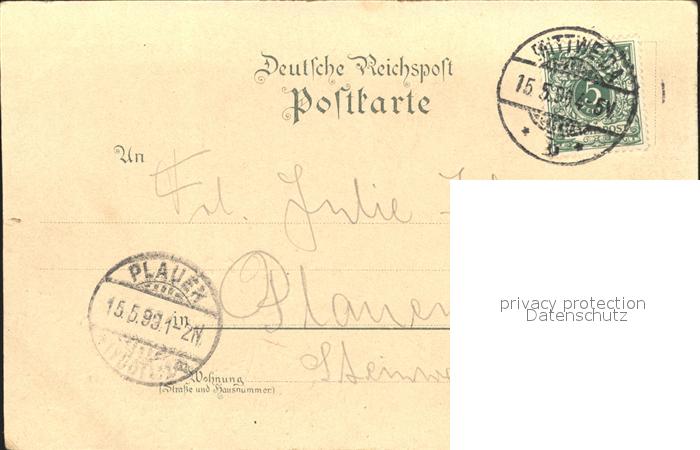 Deutsche Reichspost
Postkarte
MITTWEIDA
15.5.99. 4-5N.
5
An
Frl. Julie
PLAUEN
15.5.99. 1-2N
in
Plauen
privacy protection
Datenschutz
Wohnung
(Straße und Hausnummer)